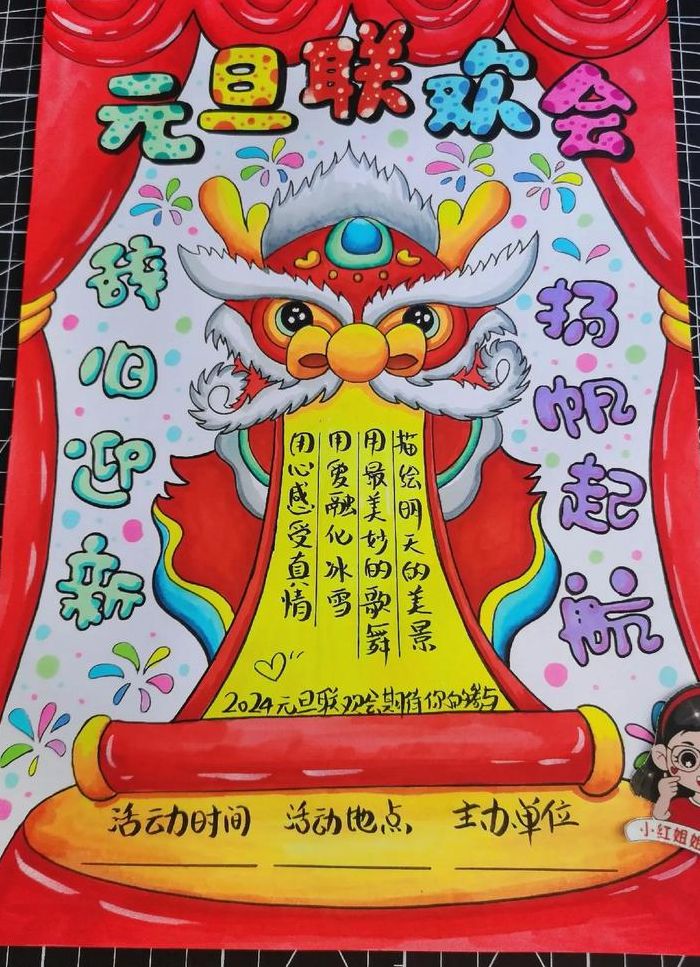 元旦联欢会
辞旧迎新
扬帆起航
描绘明天的美景
用最美妙的歌舞
用爱融化冰雪
用心感受真情
2024元旦联欢会期待你的参与
活动时间 活动地点 主办单位
小红姐姐